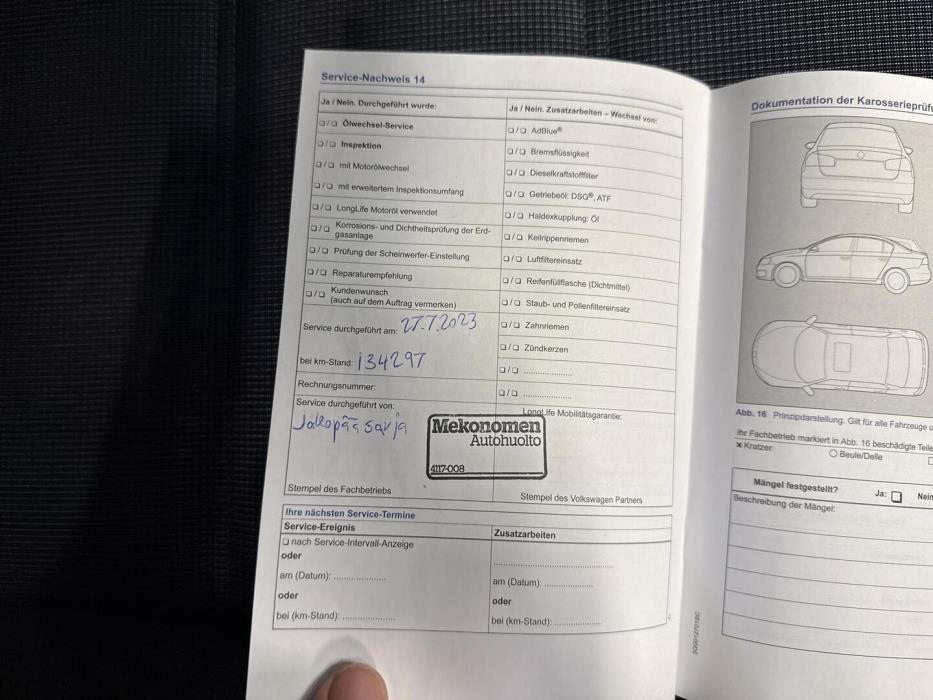 Service-Nachweis 14
Ja / Nein. Durchgeführt wurde:
❑/❑ Ölwechsel-Service
❑/❑ Inspektion
❑/❑ mit Motorölwechsel
❑/❑ mit erweitertem Inspektionsumfang
❑/❑ LongLife Motoröl verwendet
❑/❑ Korrosions- und Dichtheitsprüfung der Erd-
gasanlage
❑/❑ Prüfung der Scheinwerfer-Einstellung
❑/❑ Reparaturempfehlung
❑/❑ Kundenwunsch
(auch auf dem Auftrag vermerken)
Service durchgeführt am: 27.7.2023
bei km-Stand: 134297
Rechnungsnummer:
Service durchgeführt von:
Stempel des Fachbetriebs
Ja / Nein. Zusatzarbeiten – Wechsel von:
❑/❑ AdBlue®
❑/❑ Bremsflüssigkeit
❑/❑ Dieselkraftstofffilter
❑/❑ Getriebeöl: DSG®, ATF
❑/❑ Haldexkupplung: Öl
❑/❑ Keilrippenriemen
❑/❑ Luftfiltereinsatz
❑/❑ Reifenfüllflasche (Dichtmittel)
❑/❑ Staub- und Pollenfiltereinsatz
❑/❑ Zahnriemen
❑/❑ Zündkerzen
❑/❑ ......................
❑/❑ ......................
LongLife Mobilitätsgarantie:
Mekonomen
Autohuolto
4117-008
Stempel des Volkswagen Partners
Ihre nächsten Service-Termine
Service-Ereignis
❑ nach Service-Intervall-Anzeige
oder
am (Datum): ......................
oder
bei (km-Stand): ......................
Zusatzarbeiten
......................
am (Datum): ......................
oder
bei (km-Stand): ......................
Dokumentation der Karosserieprüf
Abb. 16 Prinzipdarstellung. Gilt für alle Fahrzeuge
Ihr Fachbetrieb markiert in Abb. 16 beschädigte Teile
× Kratzer ○ Beule/Delle
Mängel festgestellt? Ja: ❑ Nein
Beschreibung der Mängel: